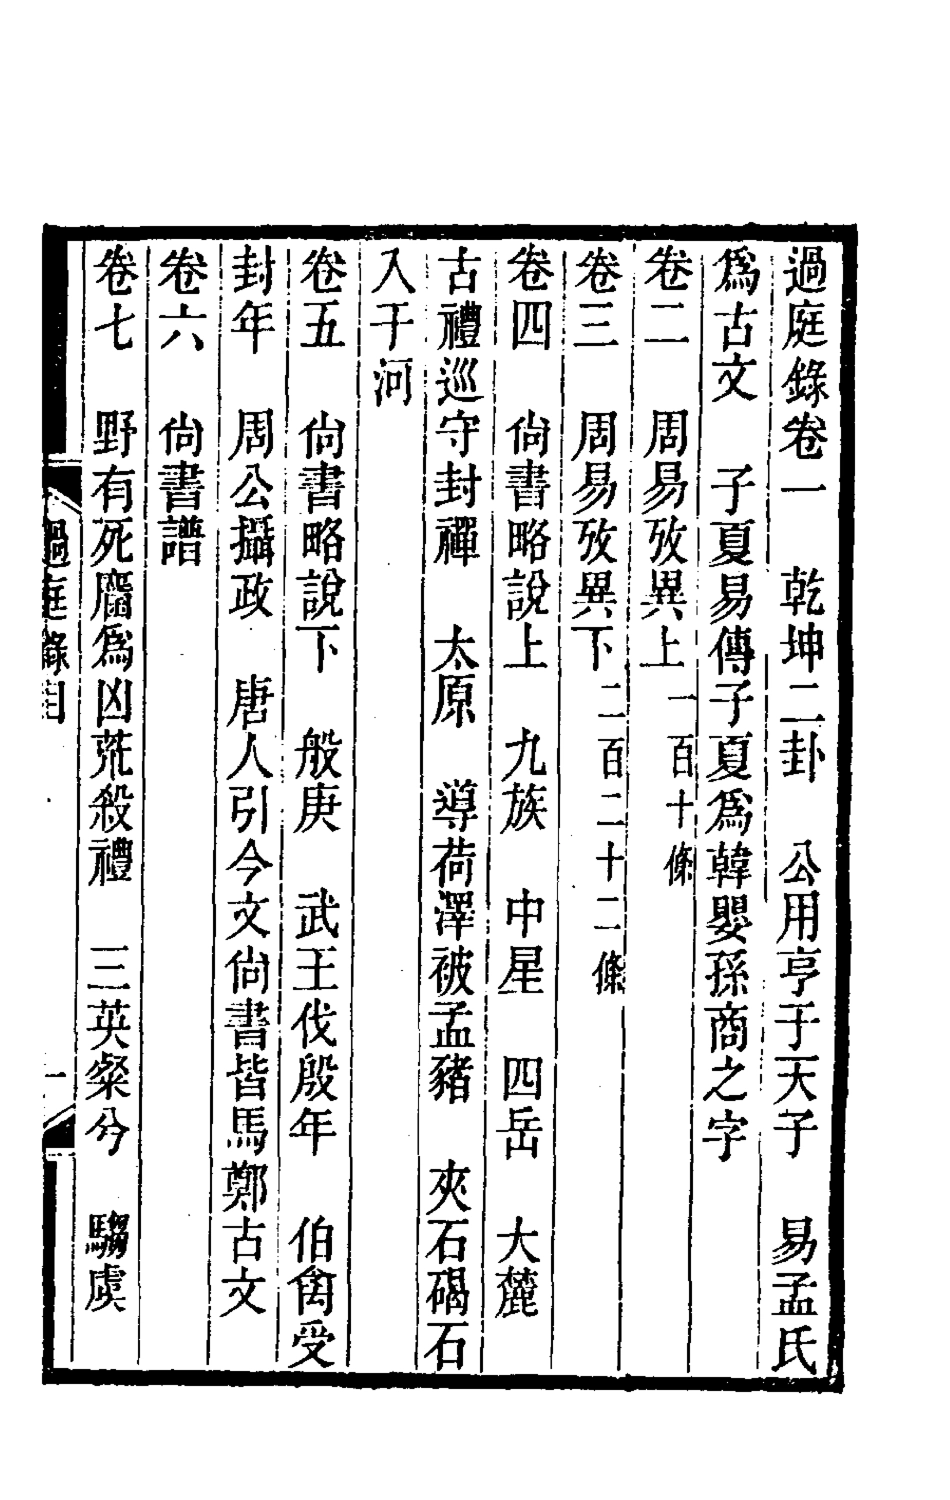 過庭錄卷一　乾坤二卦　公用亨于天子　易孟氏
為古文　子夏易傳子夏為韓嬰孫商之字
卷二　周易攷異上　一百十條
卷三　周易攷異下　二百二十二條
卷四　尙書略說上　九族　中星　四岳　大麓
古禮巡守封禪　太原　導荷澤被孟豬　夾石碣石
入于河
卷五　尙書略說下　般庚　武王伐殷年　伯禽受
封年　周公攝政　唐人引今文尙書皆馬鄭古文
卷六　尙書譜
卷七　野有死麕為凶荒殺禮　三英粲兮　騶虞
過庭錄目　一